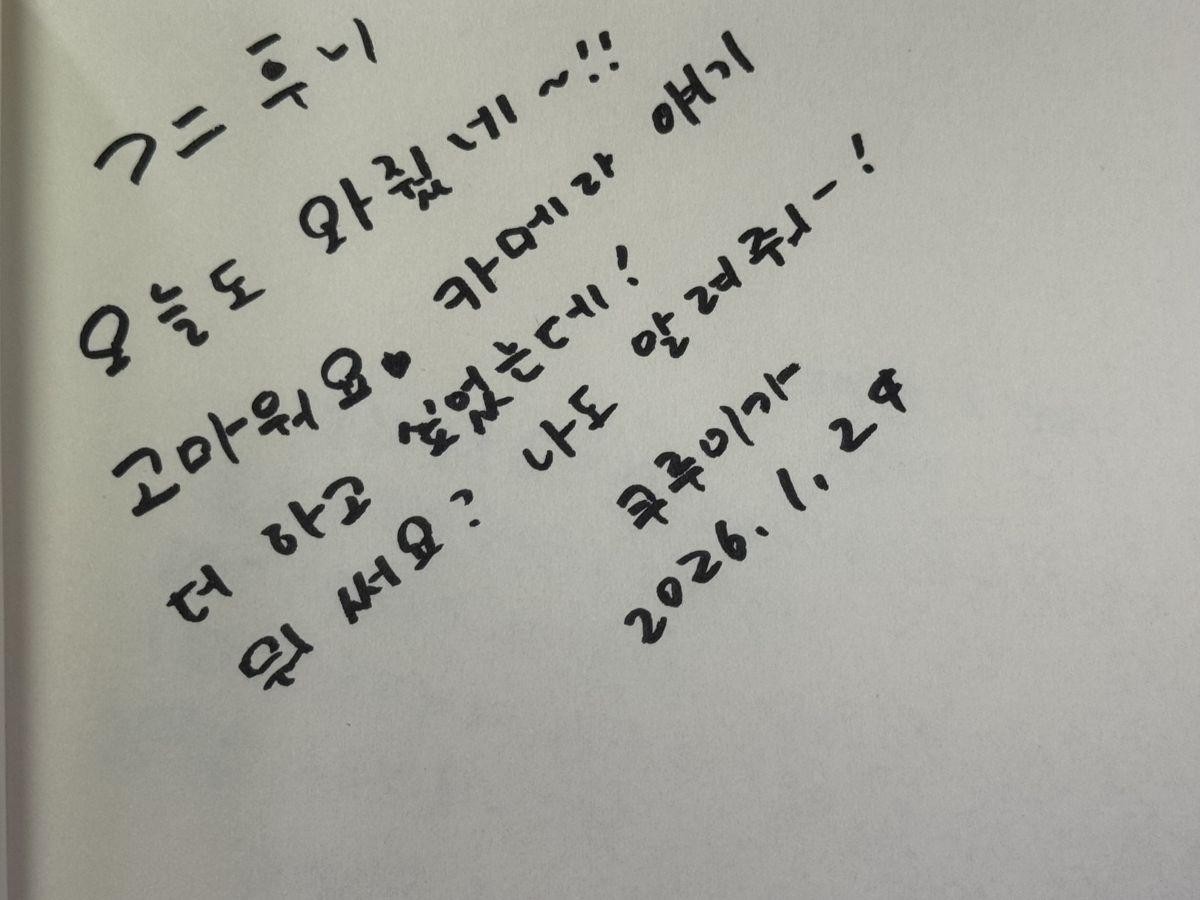 ㄱ= 후니
오늘도 와줬네~!!
고마워요♥ 카메라 얘기
더 하고 싶었는데!
뭐 써요? 나도 알려줘-!
쿠루미가
2026. 1. 24